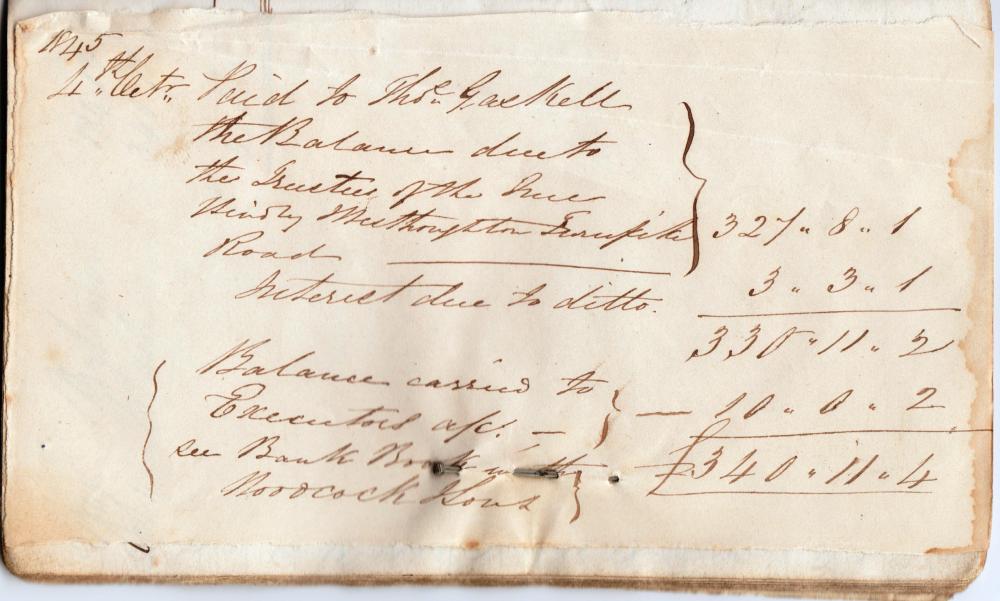 1845
4th Octr. Paid to Thos. Gaskell
the Balance due to
the Trustees of the Ince
Hindley Westhoughton Turnpike 327 " 8 " 1
Road
Interest due to ditto. 3 " 3 " 1
330 " 11 " 2
Balance carried to
Executors a/c. — — 10 " 0 " 2
see Bank Book with £340 " 11 " 4
Woodcock & Sons